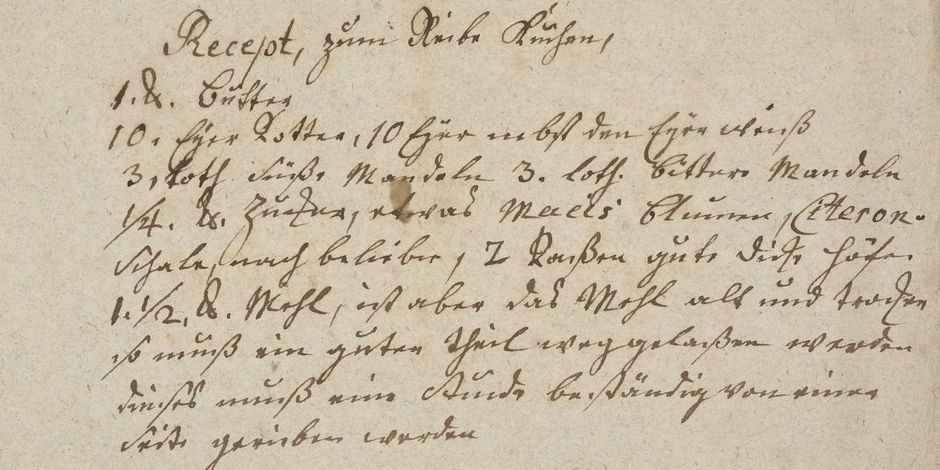 Recept, zum Reibe Kuchen,
1. ℔. Butter
10. Eÿer Dotter, 10 Eÿer nebst den Eÿer weiß
3, Loth süße Mandeln 3. Loth. bittere Mandeln
1/4. ℔. Zucker, etwas Macis blumen, Citeron-
schale, nach beliebe, 2 Taßen gute dicke Höfe.
1. 1/2, ℔. Mehl, ist aber das Mehl alt und trocken
so muß ein guter Theil weggelaßen werden
dieses muß eine Stunde beständig von einer
Seite gerieben werden